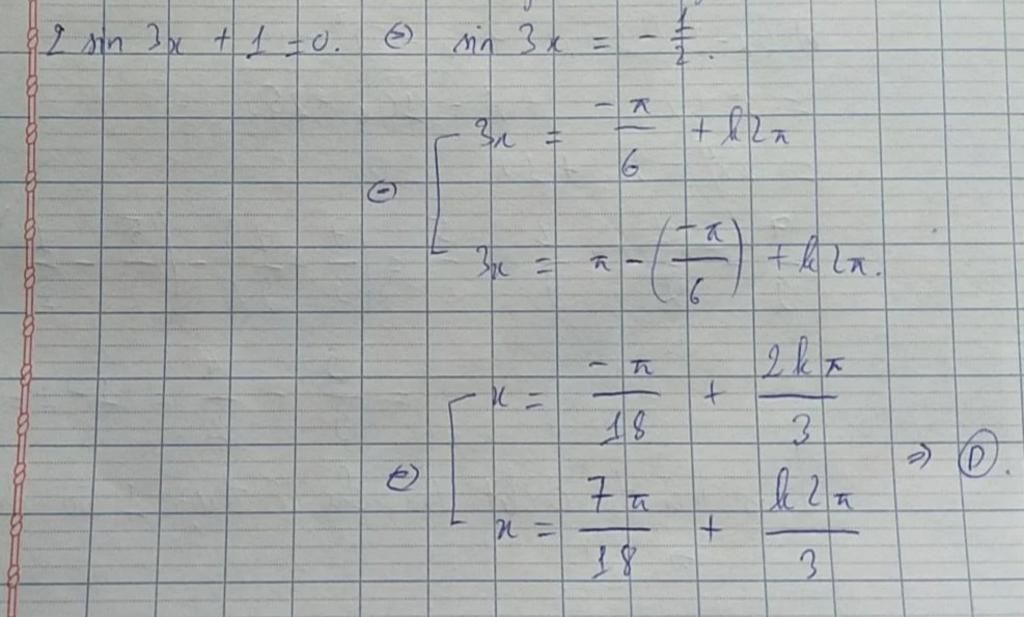 2 sin 3x + 1 = 0. ⇔ sin 3x = - 1/2.
⇔ [ 3x = -π/6 + k2π
3x = π - (-π/6) + k2π.
⇔ [ x = -π/18 + 2kπ/3
x = 7π/18 + k2π/3 ⇒ D.